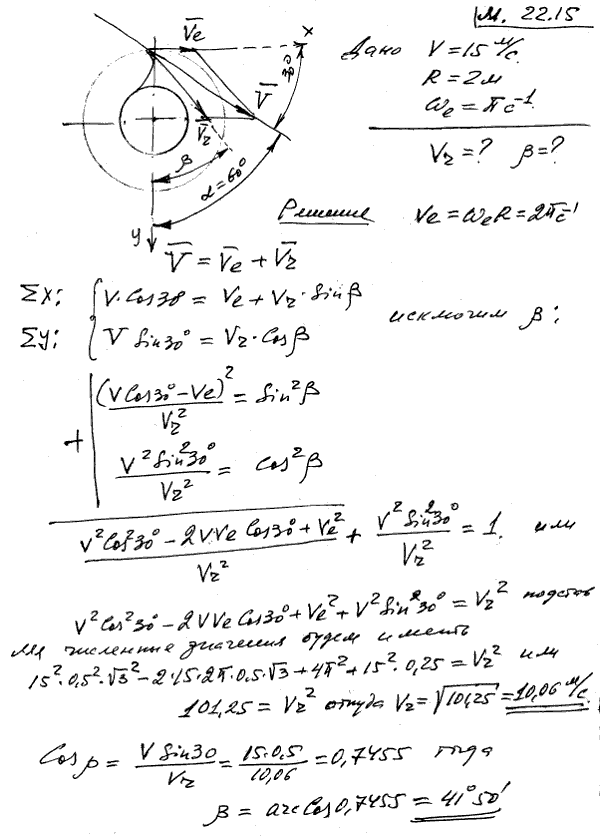 М. 22.15
Дано V = 15 м/с.
R = 2м
ωe = π с⁻¹
Vr = ? β = ?
V̄e
x
30
V̄
V̄r
β
α = 60°
y
Решение Ve = ωeR = 2π с⁻¹
V̄ = V̄e + V̄r
Σx: { V·Cos30 = Ve + Vr·Sinβ
Σy: { V Sin30° = Vr·Cosβ
исключим β:
(V Cos30° - Ve)² / Vr² = Sin²β
+
V² Sin²30° / Vr² = Cos²β
(V² Cos²30° - 2VVe Cos30° + Ve²) / Vr² + V² Sin²30° / Vr² = 1. или
V² Cos²30° - 2VVe Cos30° + Ve² + V² Sin²30° = Vr² подстав
ляя численные значения будем иметь
15²·0,5²·√3² - 2·15·2π·0.5·√3 + 4π² + 15²·0,25 = Vr² или
101,25 = Vr² откуда Vr = √10,25 = 10,06 м/с.
Cosβ = V Sin30 / Vr = 15·0.5 / 10,06 = 0,7455 тогда
β = arcCos0,7455 = 41°50'